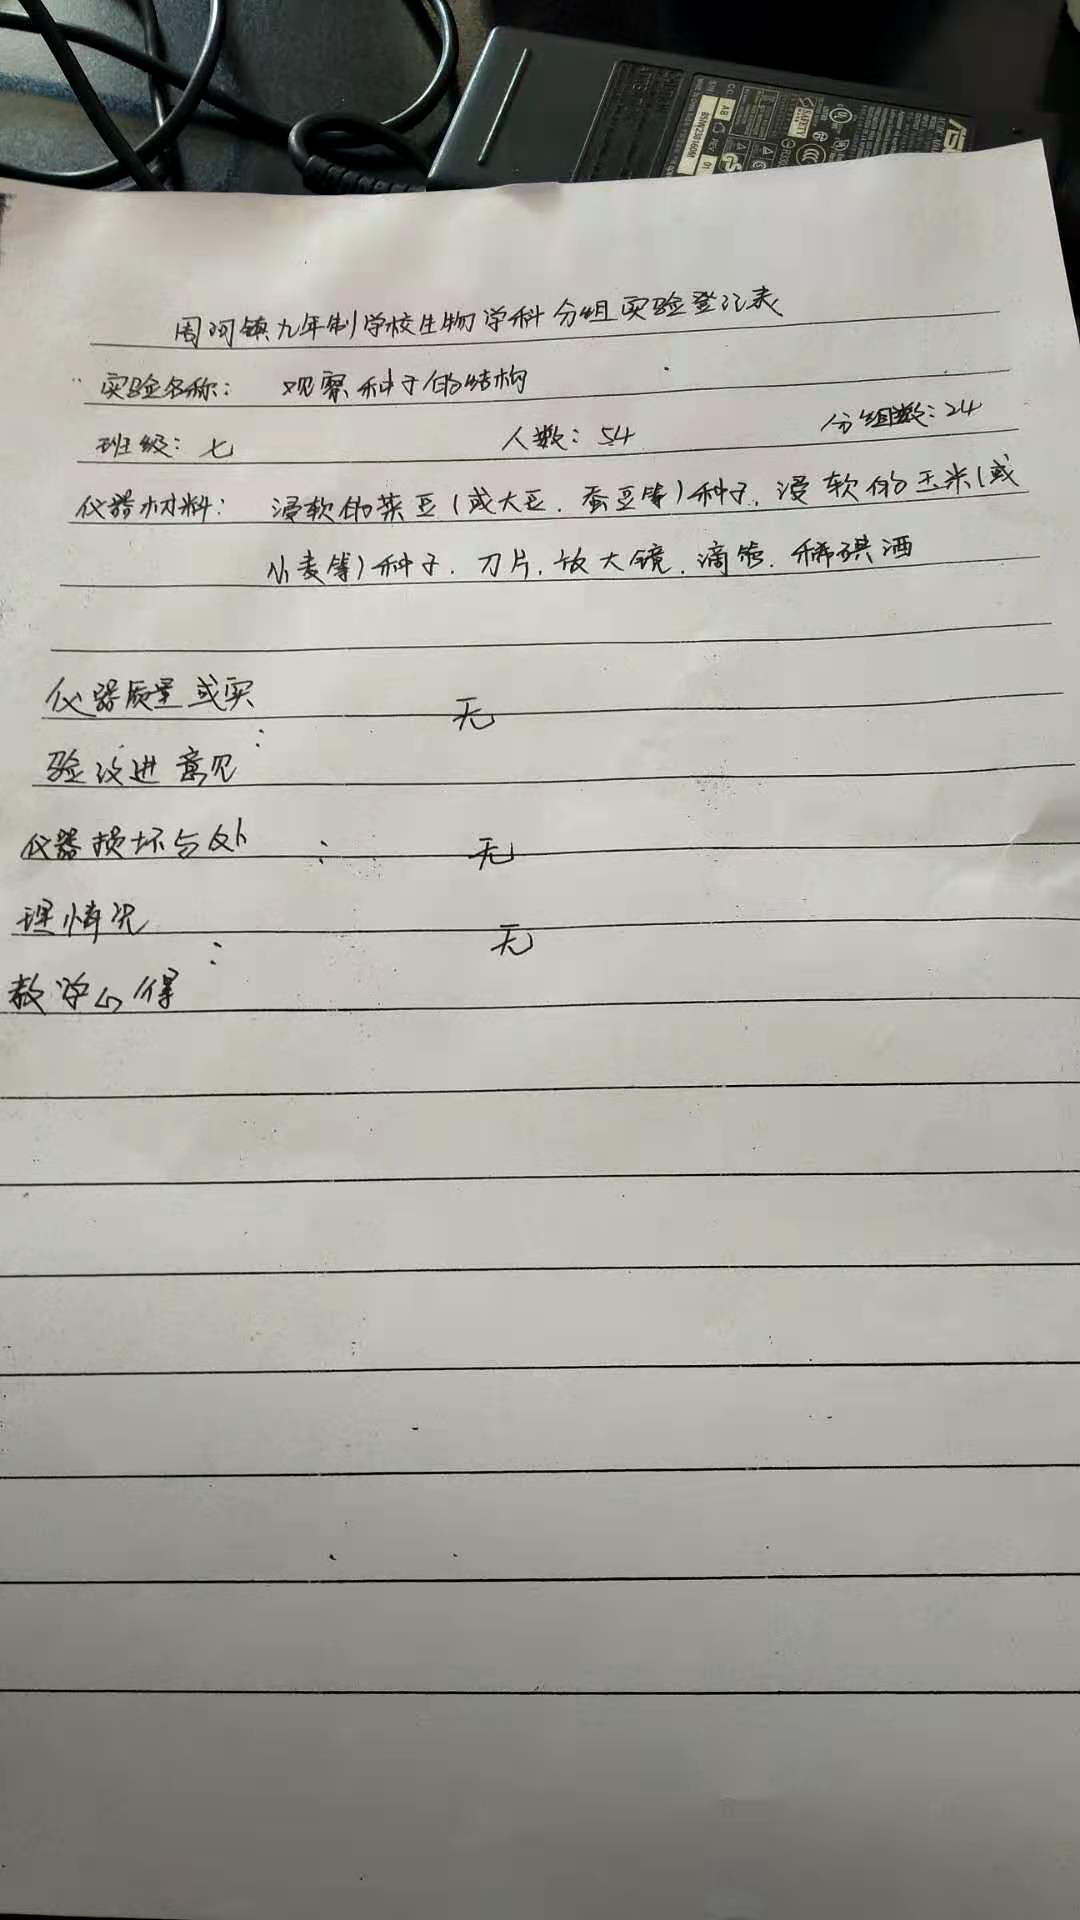 周河镇九年制学校生物学科分组实验登记表
实验名称: 观察种子的结构
班级: 七 人数: 54 分组数: 24
仪器材料: 浸软的菜豆(或大豆、蚕豆等)种子、浸软的玉米(或
小麦等)种子、刀片、放大镜、滴管、稀碘酒
仪器质量或实
验改进意见 : 无
仪器损坏与处
理情况 : 无
教学心得 : 无